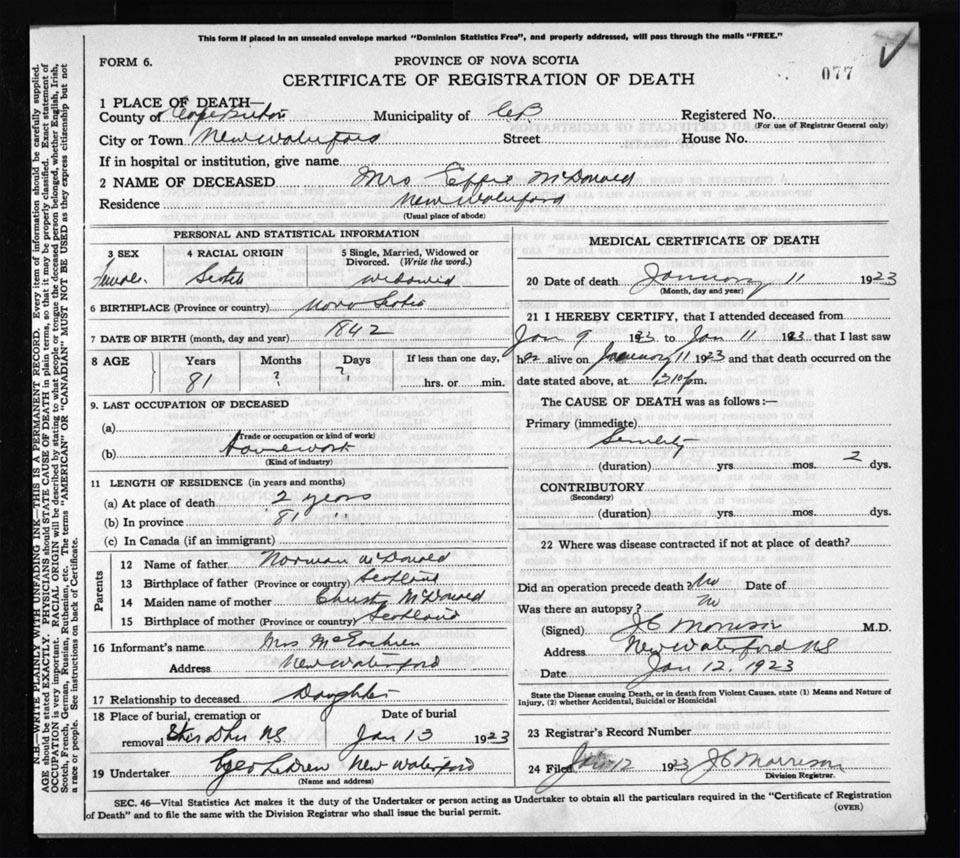 This form if placed in an unsealed envelope marked "Dominion Statistics Free", and properly addressed, will pass through the mails "FREE."
FORM 6.
PROVINCE OF NOVA SCOTIA
CERTIFICATE OF REGISTRATION OF DEATH
077
1 PLACE OF DEATH—
County of Cape Breton Municipality of CB Registered No.
(For use of Registrar General only)
City or Town New Waterford Street House No.
If in hospital or institution, give name
2 NAME OF DECEASED Mrs Effie McDonald
Residence New Waterford
(Usual place of abode)
PERSONAL AND STATISTICAL INFORMATION
3 SEX 4 RACIAL ORIGIN 5 Single, Married, Widowed or Divorced. (Write the word.)
female. Scotch widowed
6 BIRTHPLACE (Province or country) Nova Scotia
7 DATE OF BIRTH (month, day and year) 1842
8 AGE Years Months Days If less than one day,
81 ? ? hrs. or min.
9. LAST OCCUPATION OF DECEASED
(a)
(Trade or occupation or kind of work)
(b) Housework
(Kind of industry)
11 LENGTH OF RESIDENCE (in years and months)
(a) At place of death 2 years
(b) In province 81 "
(c) In Canada (if an immigrant)
Parents
12 Name of father Norman McDonald
13 Birthplace of father (Province or country) Scotland
14 Maiden name of mother Christy McDonald
15 Birthplace of mother (Province or country) Scotland
16 Informant's name Mrs McEachren
Address New Waterford
17 Relationship to deceased Daughter
18 Place of burial, cremation or removal NS
Date of burial Jan 13 1923
19 Undertaker New Waterford
(Name and address)
MEDICAL CERTIFICATE OF DEATH
20 Date of death January 11 1923
(Month, day and year)
21 I HEREBY CERTIFY, that I attended deceased from
Jan 9 1923 to Jan 11 1923 that I last saw
her alive on January 11 1923 and that death occurred on the
date stated above, at p.m.
The CAUSE OF DEATH was as follows:—
Primary (immediate)
Senility
(duration) yrs. mos. 2 dys.
CONTRIBUTORY
(Secondary)
(duration) yrs. mos. dys.
22 Where was disease contracted if not at place of death?
Did an operation precede death? No Date of
Was there an autopsy? No
(Signed) JC Morrison M.D.
Address New Waterford NS
Date Jan 12, 1923
State the Disease causing Death, or in death from Violent Causes, state (1) Means and Nature of
Injury, (2) whether Accidental, Suicidal or Homicidal
23 Registrar's Record Number
24 Filed Jan 12 1923 JC Morrison
Division Registrar.
SEC. 46—Vital Statistics Act makes it the duty of the Undertaker or person acting as Undertaker to obtain all the particulars required in the "Certificate of Registration
of Death" and to file the same with the Division Registrar who shall issue the burial permit.
(OVER)
N.B.—WRITE PLAINLY WITH UNFADING INK—THIS IS A PERMANENT RECORD. Every item of information should be carefully supplied.
AGE should be stated EXACTLY. PHYSICIANS should STATE CAUSE OF DEATH in plain terms, so that it may be properly classified. Exact statement of
OCCUPATION is very important. RACIAL ORIGIN will be described by stating to what people or tongue the deceased person belonged, whether English, Irish,
Scotch, French, German, Russian, Ruthenian, etc. The terms "AMERICAN" or "CANADIAN" MUST NOT BE USED as they express citizenship but not
a race or people. See instructions on back of Certificate.